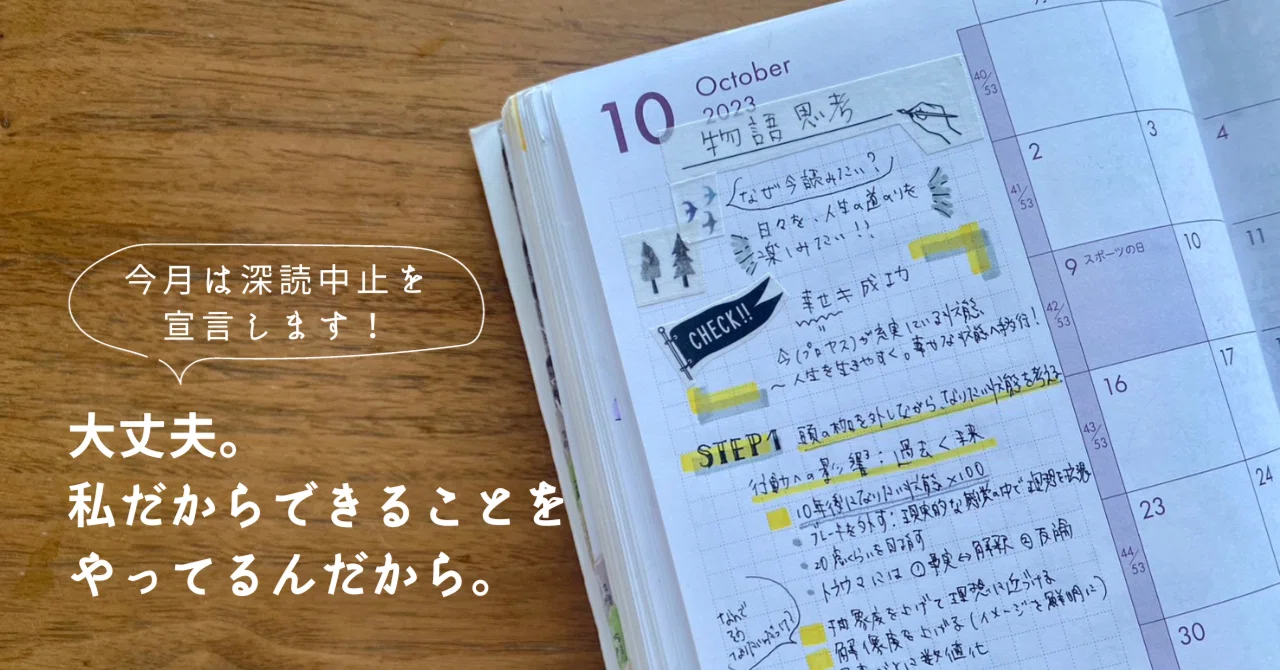 今月は深読中止を
宣言します！
大丈夫。
私だからできることを
やってるんだから。
10
October
2023
物語思考
なぜ今読みたい？
日々を、人生の道のりを
楽しみたい！！
CHECK!!
幸せ≠成功
今(プロセス)が充実している状態
〜人生を生きやすく。幸せな状態へ移行！
STEP1 頭の枷を外しながら、なりたい状態を考える
行動への影響：過去く未来
10年後になりたい状態×100
ブレーキを外す：現実的な制約の中で理想を拡張
20点くらいを目指す
トラウマには①事実↔解釈②反論
抽象度を上げて理想に近づける
解像度を上げる(イメージを鮮明に)
数値化
なんで
そう
なりたいんだっけ?
40/53
41/53
2
3
4
42/53
9 スポーツの日
10
11
43/53
16
17
44/53
23
24
30